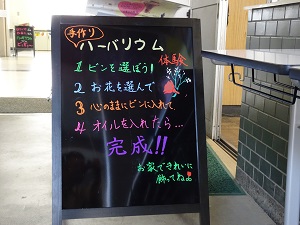 手作り
ハーバリウム
体験
1 ビンを選ぼう!
2 お花を選んで
3 心のままにビンに入れて
4 オイルを入れたら…
完成!!
お家できれいに
飾ってね